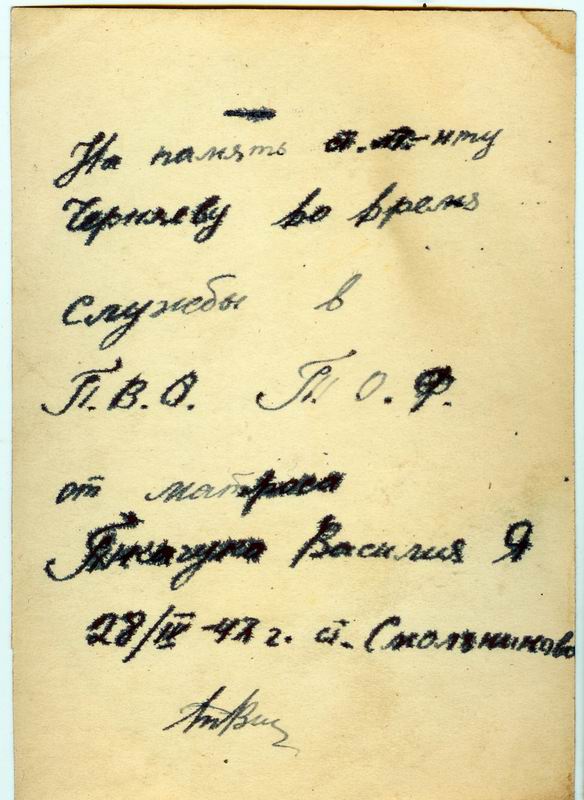 На память л. л-нту
Черняеву во время
службы в
П.В.О. Т. О. Ф.
от матроса
Василия Я
28/IV-47 г. с. Смольниново